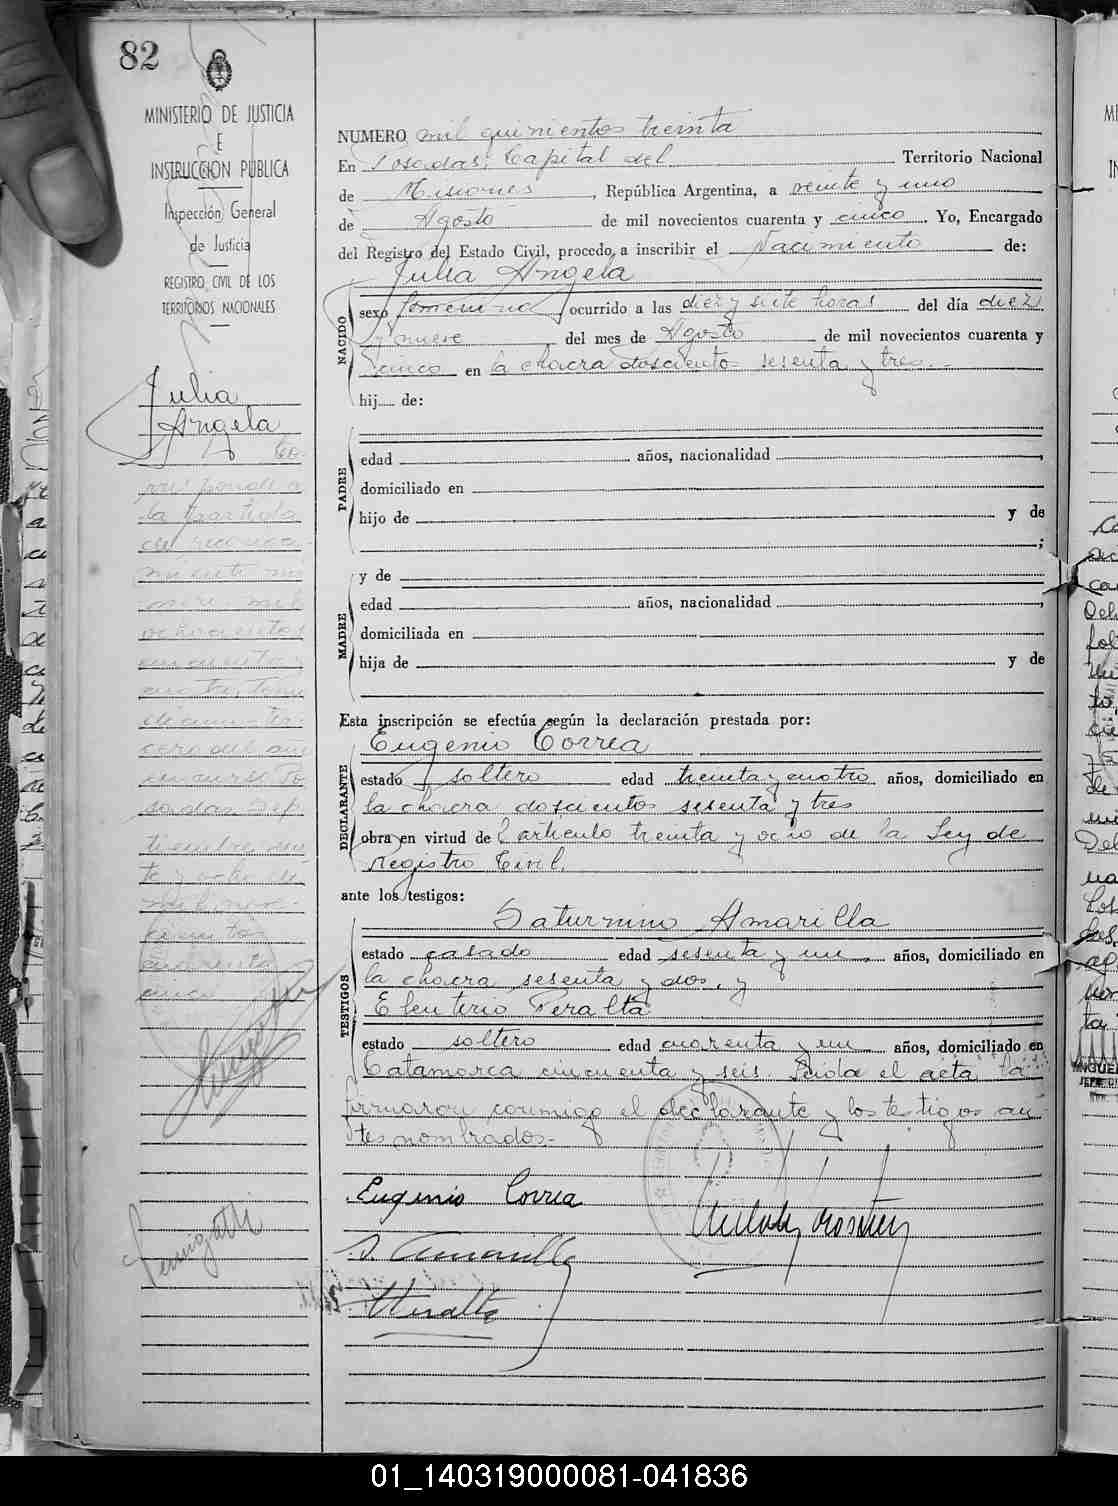 82
MINISTERIO DE JUSTICIA
E
INSTRUCCION PUBLICA
Inspección General
de Justicia
REGISTRO CIVIL DE LOS
TERRITORIOS NACIONALES
Julia
Angela
Co-
rresponde a
la partida
de reconoci-
miento
mil
ochocientos
cincuenta y
cuatro, tomo
ter-
cero del año
en curso. Po-
sadas, Sep-
tiembre
de
mil nove-
cientos
cuarenta
cinco
NUMERO mil quinientos treinta
En Posadas, Capital del Territorio Nacional
de Misiones, República Argentina, a veinte y uno
de Agosto de mil novecientos cuarenta y cinco. Yo, Encargado
del Registro del Estado Civil, procedo a inscribir el Nacimiento de:
Julia Angela
NACIDO
sexo femenino ocurrido a las diez y siete horas del día diez
y nueve, del mes de Agosto de mil novecientos cuarenta y
cinco en la chacra doscientos sesenta y tres.-
hij.... de:
PADRE
edad años, nacionalidad ,
domiciliado en
hijo de y de
;
MADRE
y de
edad años, nacionalidad ,
domiciliada en
hija de y de
Esta inscripción se efectúa según la declaración prestada por:
Eugenio Correa
DECLARANTE
estado soltero edad treinta y cuatro años, domiciliado en
la chacra doscientos sesenta y tres
obra en virtud del artículo treinta y ocho de la Ley de
Registro Civil.
ante los testigos:
Saturnino Amarilla
TESTIGOS
estado casado edad sesenta y un años, domiciliado en
la chacra sesenta y dos, y
Eleuterio Peralta
estado soltero edad cuarenta y un años, domiciliado en
Catamarca cincuenta y seis. Leída el acta la
firmaron conmigo el declarante y los testigos an-
tes nombrados.-
Eugenio Correa
S. Amarilla
EPeralta
01_140319000081-041836